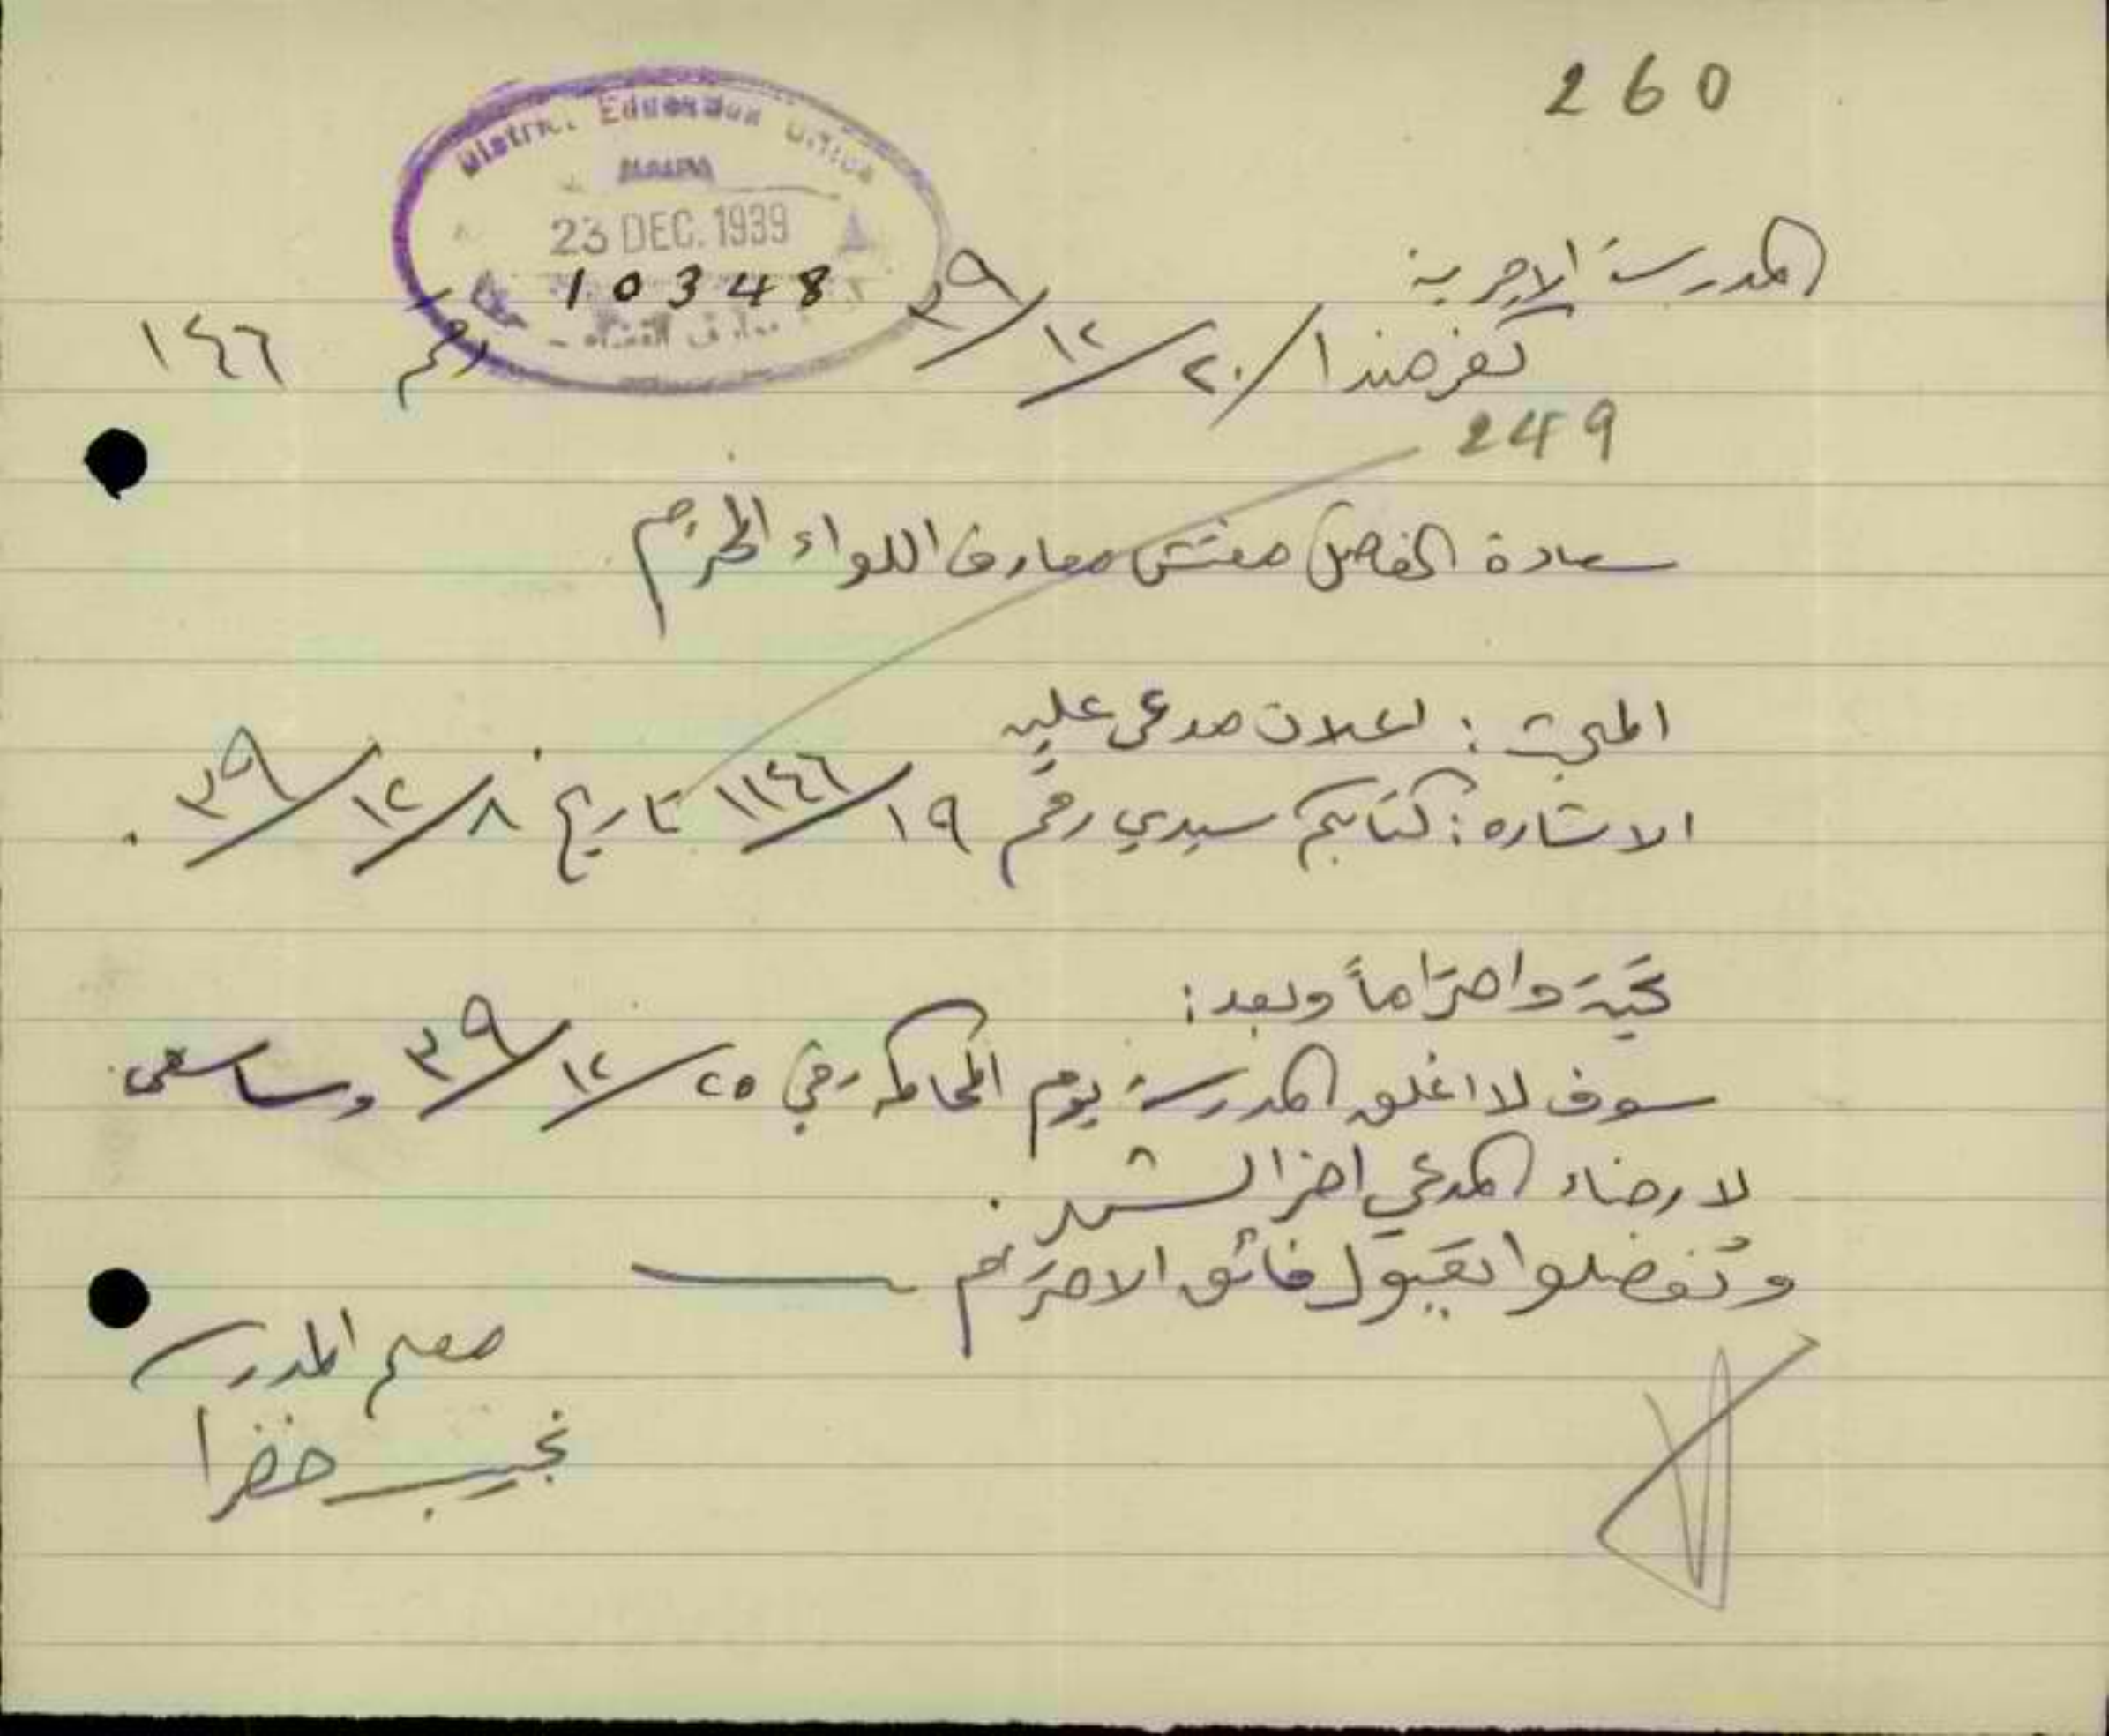 260
District Education Office
HAIFA
23 DEC. 1939
10348
المدرسة الاميرية
كفرمندا ٢٠/١٢/٣٩
رقم ١٤٦
249
سعادة الفاضل مفتش معارف اللواء المحترم
المبحث : اعلان مدعى عليه
الاشاره : كتابكم سيدي رقم ١٩/١١٤٦ تاريخ ٨/١٢/٣٩ .
تحية واحتراماً وبعد :
سوف لا اغلق المدرسة يوم المحاكمه في ٢٥/١٢/٣٩ وساسعى
لارضاء المدعي اخر الشهر .
وتفضلوا بقبول فائق الاحترام
معلم المدرسة
نجيب خضرا